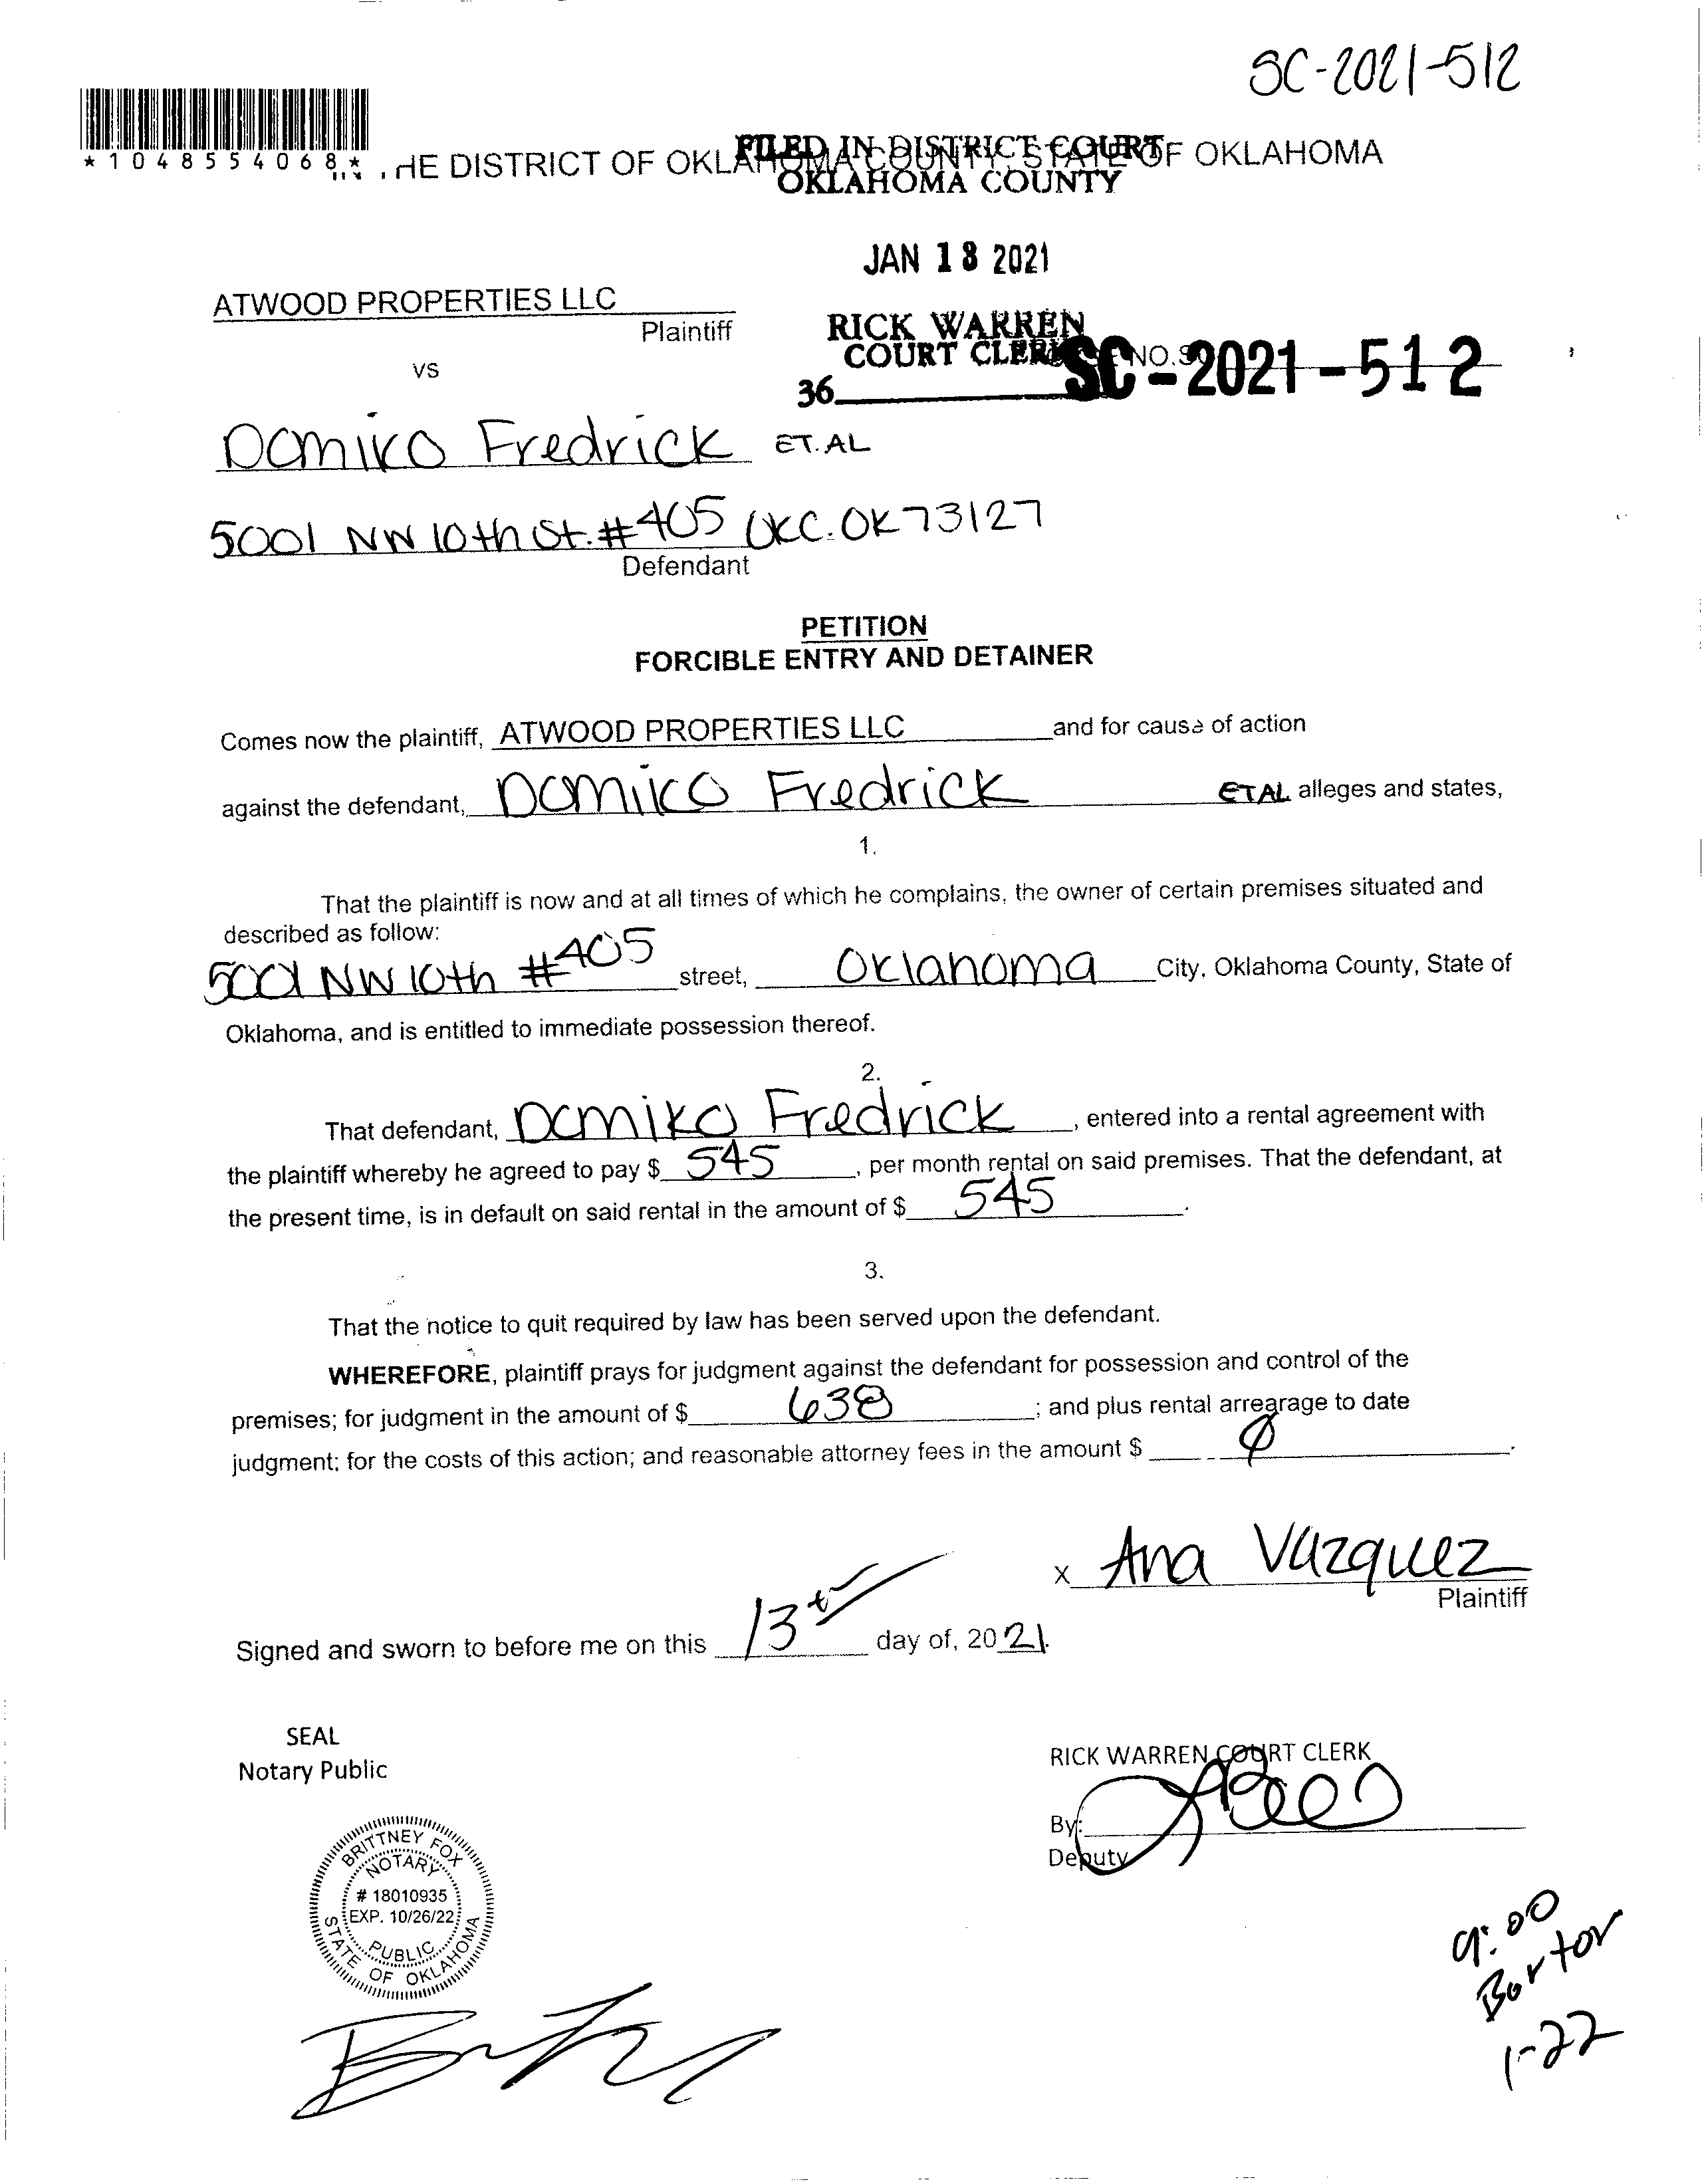 SC-2021-512
*1048554068*
THE DISTRICT OF OKLAHOMA COUNTY STATE OF OKLAHOMA
FILED IN DISTRICT COURT
OKLAHOMA COUNTY
JAN 18 2021
ATWOOD PROPERTIES LLC
Plaintiff
RICK WARREN
COURT CLERK
vs
NO.
SC-2021-512
36
Domiko Fredrick ET.AL
5001 NW 10th St. #405 OKC. OK 73127
Defendant
PETITION
FORCIBLE ENTRY AND DETAINER
Comes now the plaintiff, ATWOOD PROPERTIES LLC and for cause of action
against the defendant, Domiko Fredrick ETAL alleges and states,
1.
That the plaintiff is now and at all times of which he complains, the owner of certain premises situated and
described as follow:
5001 NW 10th #405 street, Oklahoma City, Oklahoma County, State of
Oklahoma, and is entitled to immediate possession thereof.
2.
That defendant, Domiko Fredrick, entered into a rental agreement with
the plaintiff whereby he agreed to pay $ 545, per month rental on said premises. That the defendant, at
the present time, is in default on said rental in the amount of $ 545.
3.
That the notice to quit required by law has been served upon the defendant.
WHEREFORE, plaintiff prays for judgment against the defendant for possession and control of the
premises; for judgment in the amount of $ 638; and plus rental arrearage to date
judgment; for the costs of this action; and reasonable attorney fees in the amount $ Ø.
x Ana Vazquez
Plaintiff
Signed and sworn to before me on this 13th day of, 2021.
SEAL
Notary Public
RICK WARREN COURT CLERK
By:
Deputy
BRITTNEY FOX
NOTARY
# 18010935
EXP. 10/26/22
PUBLIC
STATE OF OKLAHOMA
9:00
1-22